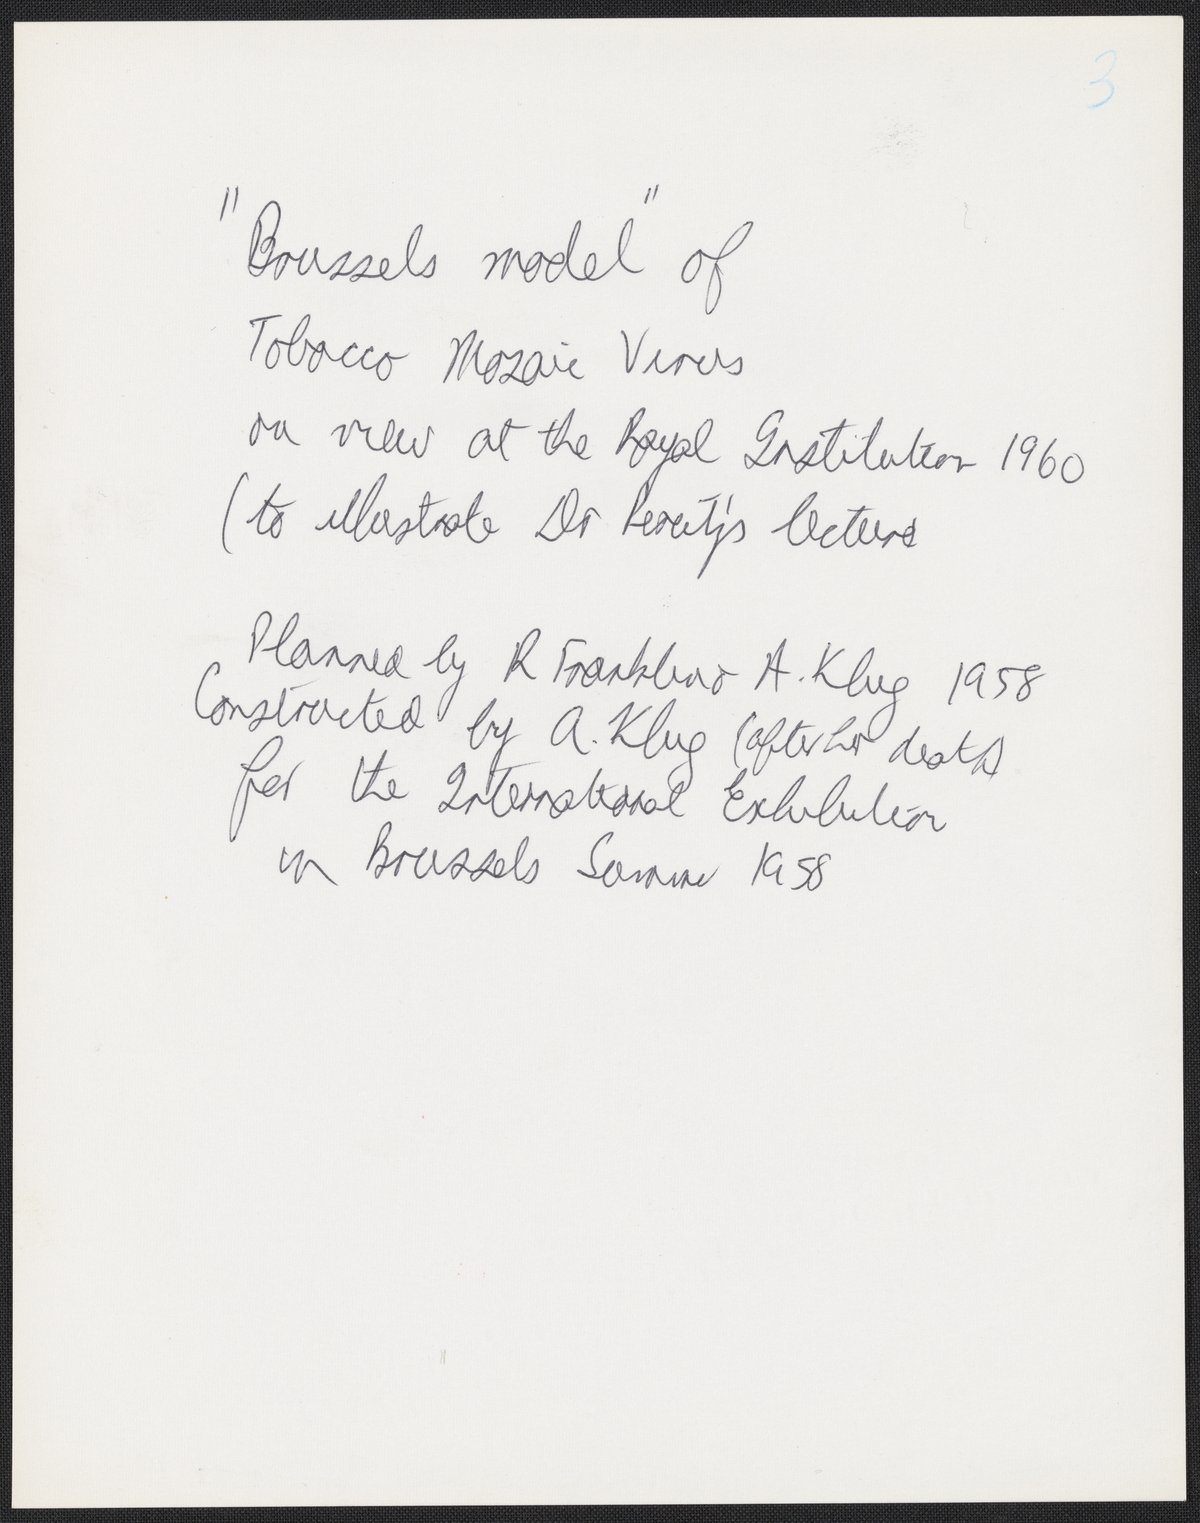 3
"Brussels model" of
Tobacco Mozaic Virus
on view at the Royal Institution 1960
(to illustrate Dr Perutz's lecture
Planned by R Franklin & A. Klug 1958
Constructed by A. Klug (after her death)
for the International Exhibition
in Brussels Summer 1958